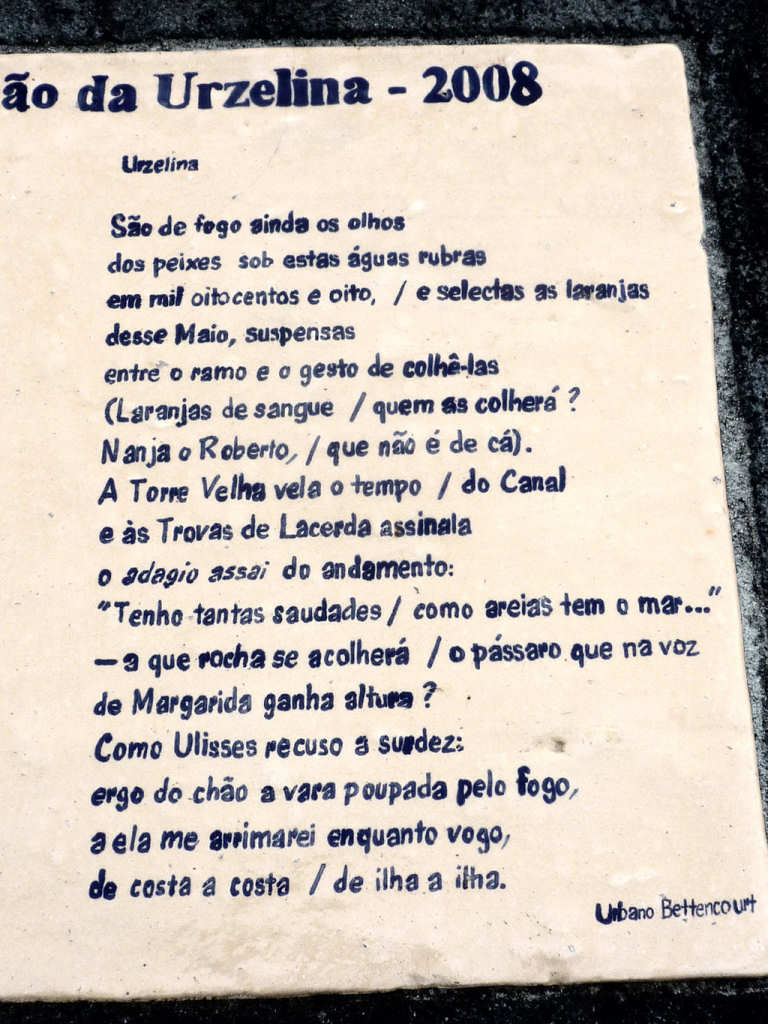 ão da Urzelina - 2008
Urzelina
São de fogo ainda os olhos
dos peixes sob estas águas rubras
em mil oitocentos e oito, / e selectas as laranjas
desse Maio, suspensas
entre o ramo e o gesto de colhê-las
(Laranjas de sangue / quem as colherá ?
Nanja o Roberto, / que não é de cá).
A Torre Velha vela o tempo / do Canal
e às Trovas de Lacerda assinala
o adagio assai do andamento:
"Tenho tantas saudades / como areias tem o mar..."
— a que rocha se acolherá / o pássaro que na voz
de Margarida ganha altura ?
Como Ulisses recuso a surdez:
ergo do chão a vara poupada pelo fogo,
a ela me arrimarei enquanto vogo,
de costa a costa / de ilha a ilha.
Urbano Bettencourt